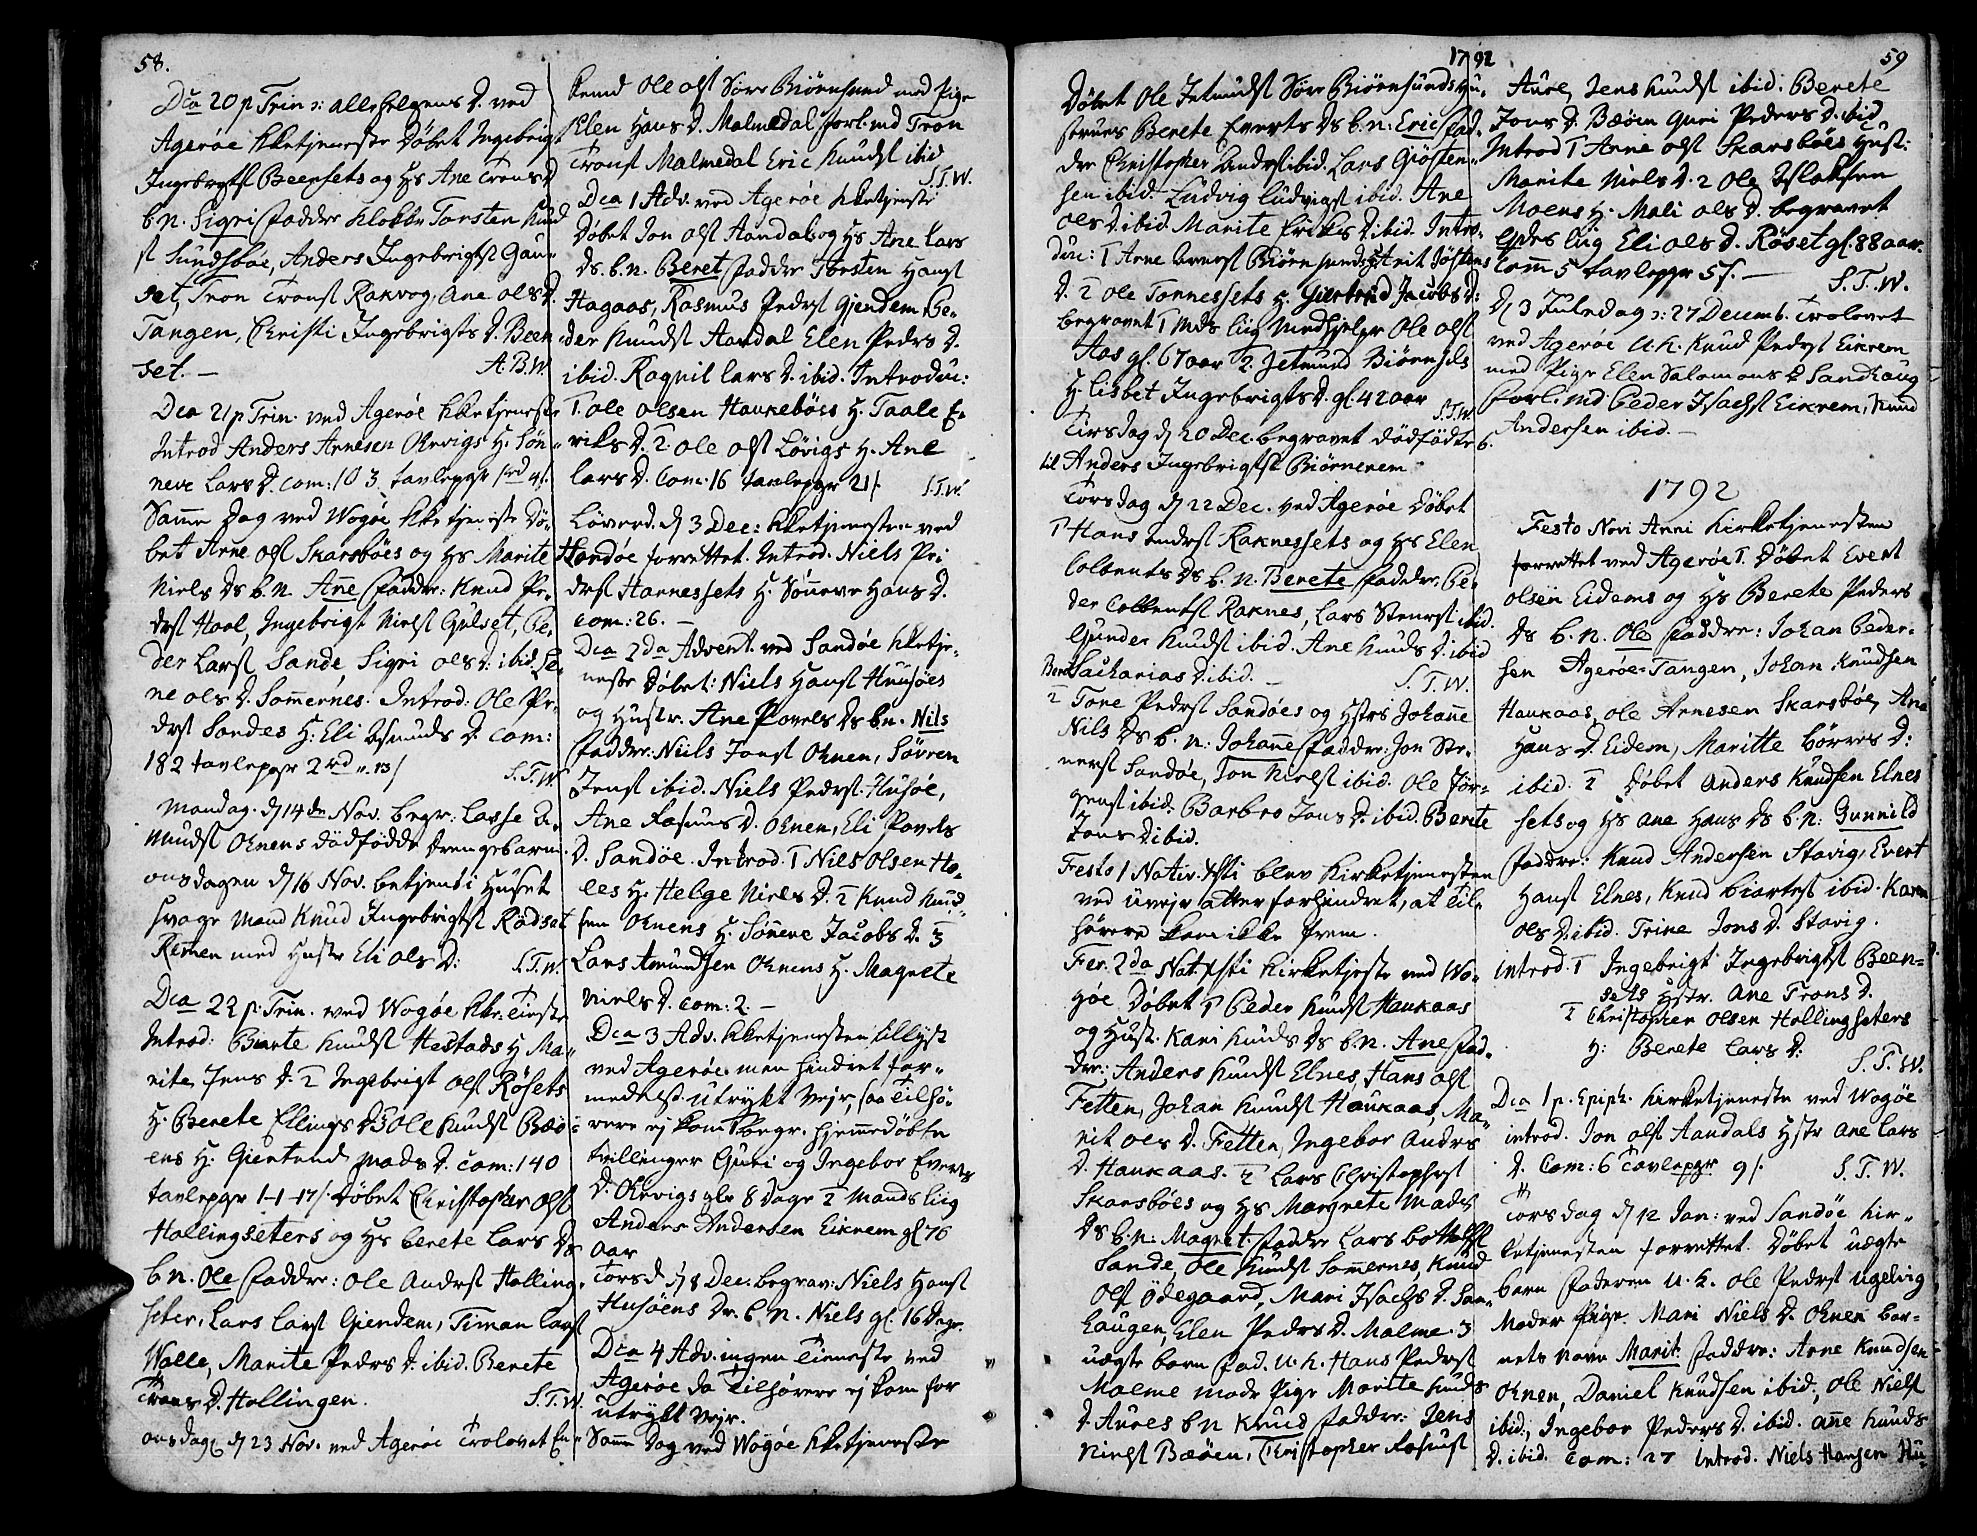 58.
Dca 20 p Trin: alle helgens D. ved
Agerøe kketjeneste Døbet Ingebrigt
Ingebrigts Beensets og Hs Ane Trons D
b.n. Sigri faddre klokkr Torsten Knud
st Sundsbøe, Anders Ingebrigtst Gau-
set, Tron Tronst Rakvog, Ane Ols D.
Tangen, Christi Ingebrigts D. Been
set. — A.B.W.
Dca 21 p Trin. ved Agerøe kketjeneste
Introd Anders Arnesen Orvigs H. Søn-
neve Lars D. Com: 103. tavlepgr
Samme Dag ved Wogøe kketjeneste Dø-
bet Arne Olst Skarsbøes og Hs Marite
Niels Ds b.n. Ane faddre: Knud Pe-
drst Hool, Ingebrigt Nielst Gulset, Pe-
der Larst Sande Sigri Ols D. ibid. Le-
ne Ols D. Sommernes. Introd: Ole Pe-
drst Sandes H: Eli Asmuds D. Com:
182 tavlepgr 2rd „ 13/ S.T.W.
Mandag. d 14de Nov. begr: Lasse A-
mundst Ohnens dødfødde drengebarn
onsdagen d 16 Nov. betjent i Huset
svage Mand Knud Ingebrigtst Rødsæt
Remen med Hustr Eli Ols D: S.T.W.
Dca 22 p: Trin. ved Wogøe kke: tieneste
Introd: Biarte Knudst Hestads H Ma-
rite Jens D. 2 Ingebrigt Olst Røsets
H. Berete Ellings D 3 Ole Knudst Bæø-
ens H. Giertrud Mads D. Com: 140
tavlepgr 1-1-17/ Døbet Christopher Olst
Hollingseters og Hs Berete Lars Ds
b.n. Ole faddre: Ole Andrst Holling-
seter, Lars Larst Gjendem, Timan Larst
Walle, Marite Peders D. ibid. Berete
Trons D. Hollingen. S.T.W.
onsdag d 23 Nov. ved Agerøe Trolovet En-
kemd Ole Olst Søre Biørnsund med Pige
Elen Hans D. Malmedal forl. md Tron
Tronst Malmedal Eric Knudst ibid
S.T.W.
Dca 1 Adv. ved Agerøe kketjeneste
Døbet Jon Olst Aandals og Hs Ane Lars
Ds. b.n. Beret faddre Torsten Hanst
Hagaas, Rasmus Pedrst Gjendem, Pe-
der Knudst Aandal Elen Pedrs D.
ibid. Ragnil Lars D. ibid. Introduc:
1. Ole Olsen Haukebøes H. Taale E-
riks D. 2. Ole Olst Løvigs H. Ane
Lars D. Com. 16 tavlepgr 21/ S.T.W.
Løverd. d 3 Dec: kketjenesten ved
Sandøe forrettet. Introd. Niels Pe-
drst Harnessets H. Sønneve Hans D.
com: 26. —
Dca 2da Advent. ved Sandøe kketje-
neste Døbet: Niels Hanst Husøes
og Hustr. Ane Povels Ds bn. Nils
faddre: Niels Jonst Ohnen, Søvren
Jenst ibid. Niels Pedrst Husøe,
Ane Rasmus D. Ohnen, Eli Povels
D. Sandøe. Introd. 1 Niels Olsen Ho-
les H. Helge Niels D. 2 Knud Knud-
sen Ohnens H. Sønneve Jacobs D. 3
Lars Amundsen Ohnens H. Magrete
Niels D. com: 2. —
Dca 3 Adv. kketjenesten tillyst
ved Agerøe men hindret for-
medelst utrykt Vejr, saa Tilhø-
rere ej kom. begr. hjemmedøbte
tvillinger Guri og Ingebor Everts
D. Orvigs glr 8 dage 2 Mands liig
Anders Andersen Eikrem gl 76
aar
Torsd d 8 Dec. begrav: Niels Hanst
Husøens Dr. b.n. Niels gl. 16 Dage.
Dca 4 Adv. ingen tieneste ved
Agerøe da Tilhørere ej kom for
utrykt Vejr.
Samme Dag ved Wogøe kketjeneste
1792
59
Døbet Ole Jetmundst Søre Biørnsunds Hu-
strues Berete Everts Ds b.n: Eric fad-
dre Christopher Andrst ibid. Lars Gjøsten-
sen ibid. Ludvig Ludvigst ibid. Ane
Ols D. ibid. Marite Eriks D. ibid. Intro-
duc: 1 Arne Iverst Biørnsunds Marit Jøstens
D. 2 Ole Tonnessets H. Giertrud Jacobs D:
begravet 1 Mds liig Medhjelper Ole Olst
Aas gl. 67 aar 2. Jetmund Biørnsets
H. Lisbet Ingebrigts D. gl. 42 aar
S.T.W
Tirsdag d 20 Dec. begravet dødfødte b.
til Anders Ingebrigtst Biørnerem
Torsdag d 22 Dec. ved Agerøe Døbet
1 Hans Andrst Raknessets og Hs Elen
Colbents Ds b.n. Berete faddre. Pe-
der Colbentst Raknes, Lars Stenerst ibid.
Gunder Knudst ibid. Ane Knuds D. ibid
Beret Sacharias D. ibid. — S.T.W.
2 Tore Pedrst Sandøes og Hstrs Johanne
Nils Ds b.n: Johanne faddre: Jon Ste-
nerst Sandøe, Jon Nielst ibid. Ole Jør-
genst ibid. Barbro Jons D. ibid. Berete
Jons D. ibid.
Festo 1 Nativ. Xsti blev Kirketjenesten
ved uvejr atter forhindret, at Til-
hørere kom ikke frem.
Fer. 2da Nat. Xsti Kirketjeste ved Wo-
gøe Døbet 1 Peder Knudst Haukaas
og Hust. Kari Knuds Ds b.n. Ane fad-
dre: Anders Knudst Elnes, Hans Olst
Fetten, Johan Knudst Haukaas, Ma-
rit Ols D. Fetten, Ingebor Andrs
D. Haukaas. 2 Lars Christopherst
Skarsbøes og Hs Margrete Mads
Ds b.n: Magret. faddre Lars Bottolfst
Sande, Ole Knudst Sommernes, Knud
Olst Ødegaard, Mari Isachs D. San-
haugen, Elen Peders D. Malme. 3
uægte barn fad. U.K. Hans Pedrst
Malme mode Pige Marite Knuds
D. Aures b.n Knud faddre: Jens
Nielst Bæøen, Christopher Rasmust
Aure, Jens Knudst ibid. Berete
Jons D. Bæøen Guri Peders D. ibid
Introd 1 Arne Olst Skarsbøes Hust:
Marite Niels D. 2 Ole Islaksen
Moens H. Mali Ols D. begravet
liig Eli Ols D. Røset gl. 88 aar.
Com 5 tavlepgr 5/. — S.T.W.
D 3 Juledag: 27 Decemb. Trolovet
ved Agerøe U.K. Knud Pedrst Eikrem
med Pige Elen Salomons D Sandhaug
forl. md Peder Isachst Eikrem, Knud
Andersen ibid. —
1792
Festo Novi Anni Kirketjenesten
forrettet ved Agerøe 1. Døbet Evert
Olsen Eidems og Hs Berete Peders
Ds b.n. Ole faddre: Johan Peder-
sen Agerøe-Tangen, Johan Knudsen
Haukaas, Ole Arnesen Skarsbøe, Ane
Hans D. Eidem, Maritte Børres D:
ibid. 2 Døbet Anders Knudsen Elnes
sets og Hs Ane Hans Ds b.n: Gunnild
faddre: Knud Andersen Stavig, Evert
Hanst Elnes, Knud Biartest ibid. Karen
Ols D. ibid. Trine Jons D. Stavig.
Introd. 1 Ingebrigt Ingebrigtst Been-
sets Hstr. Ane Trons D.
2 Christopher Olsen Hollingseters
H: Berete Lars D. S.T.W.
Dca 1 p. Epiph. Kirketjeneste ved Wogøe
introd. Jon Olst Aandals Hstr Ane Lars
D. Com: 6 tavlepgr 9/. S.T.W.
Torsdag d 12 Jan: ved Sandøe Kir-
ketjenesten forrettet. Døbet uægte
barn faderen U.K. Ole Pedrst Ugelvig
Moder Pige. Mari Niels D. Ohnen bar-
nets navn Marit. faddre: Arne Knudsen
Ohnen, Daniel Knudsen ibid., Ole Nielst
ibid, Ingebor Peders D. ibid. Anne Knuds
D. ibid. Com: 27 introd. Niels Hansen Hu-